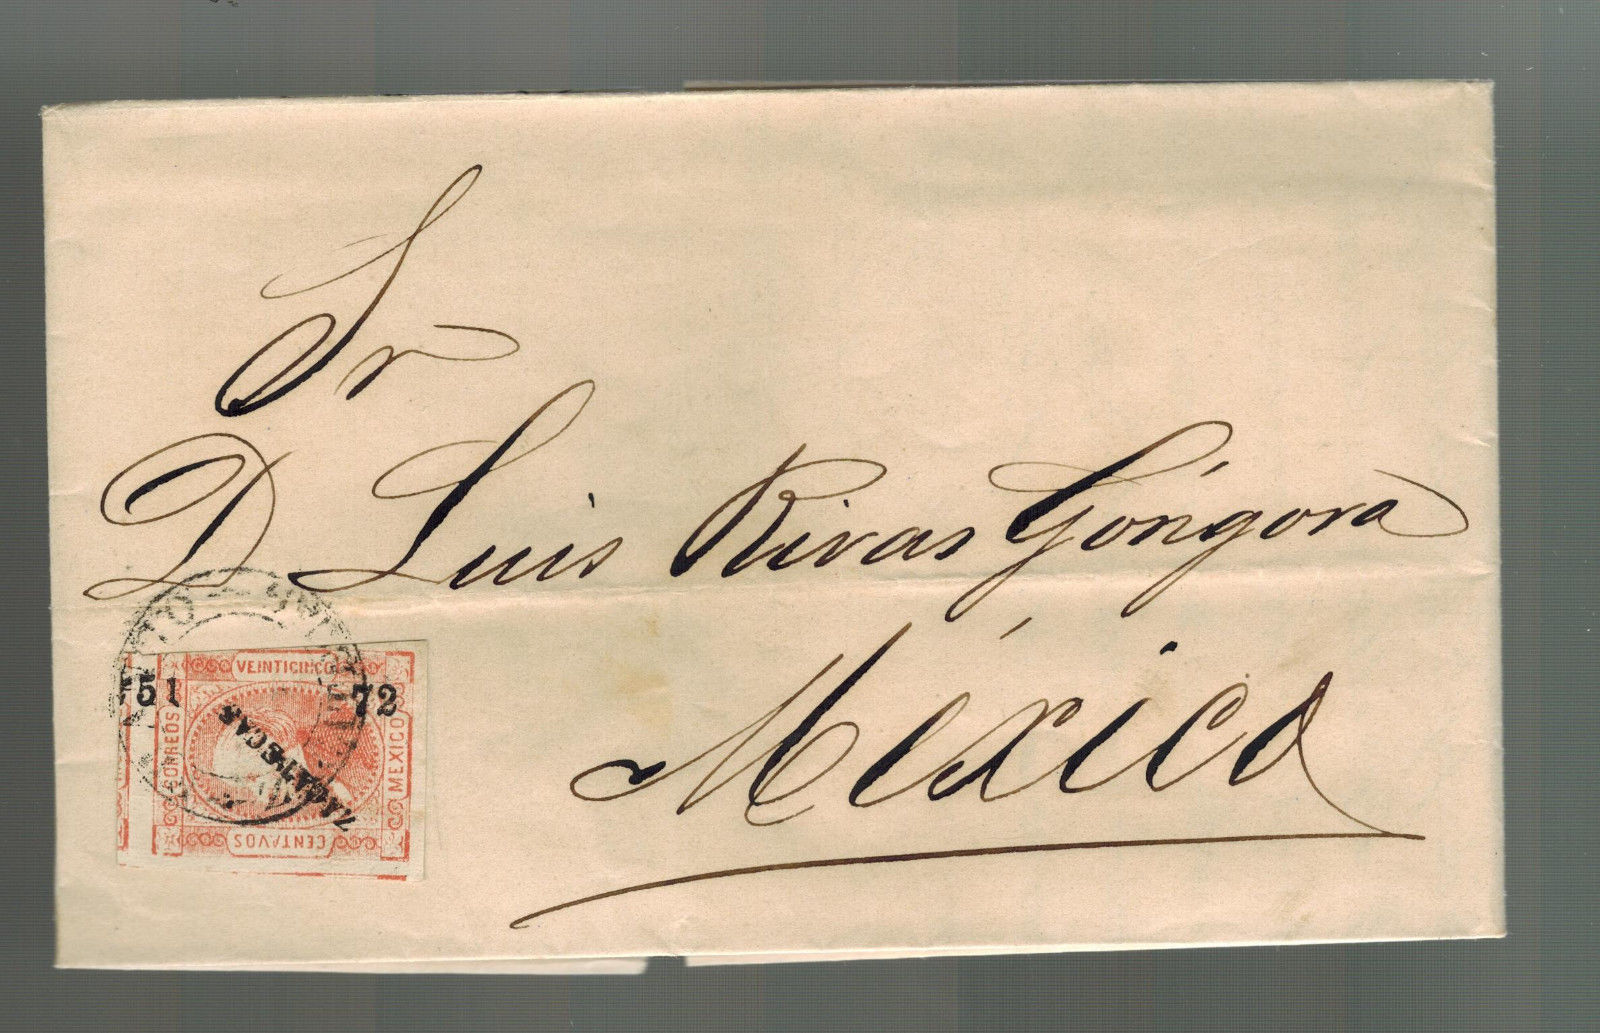 Sr
D Luis Rivas Góngora
México
51 72
VEINTICINCO
CORREOS
MEXICO
CENTAVOS
ZACATECAS